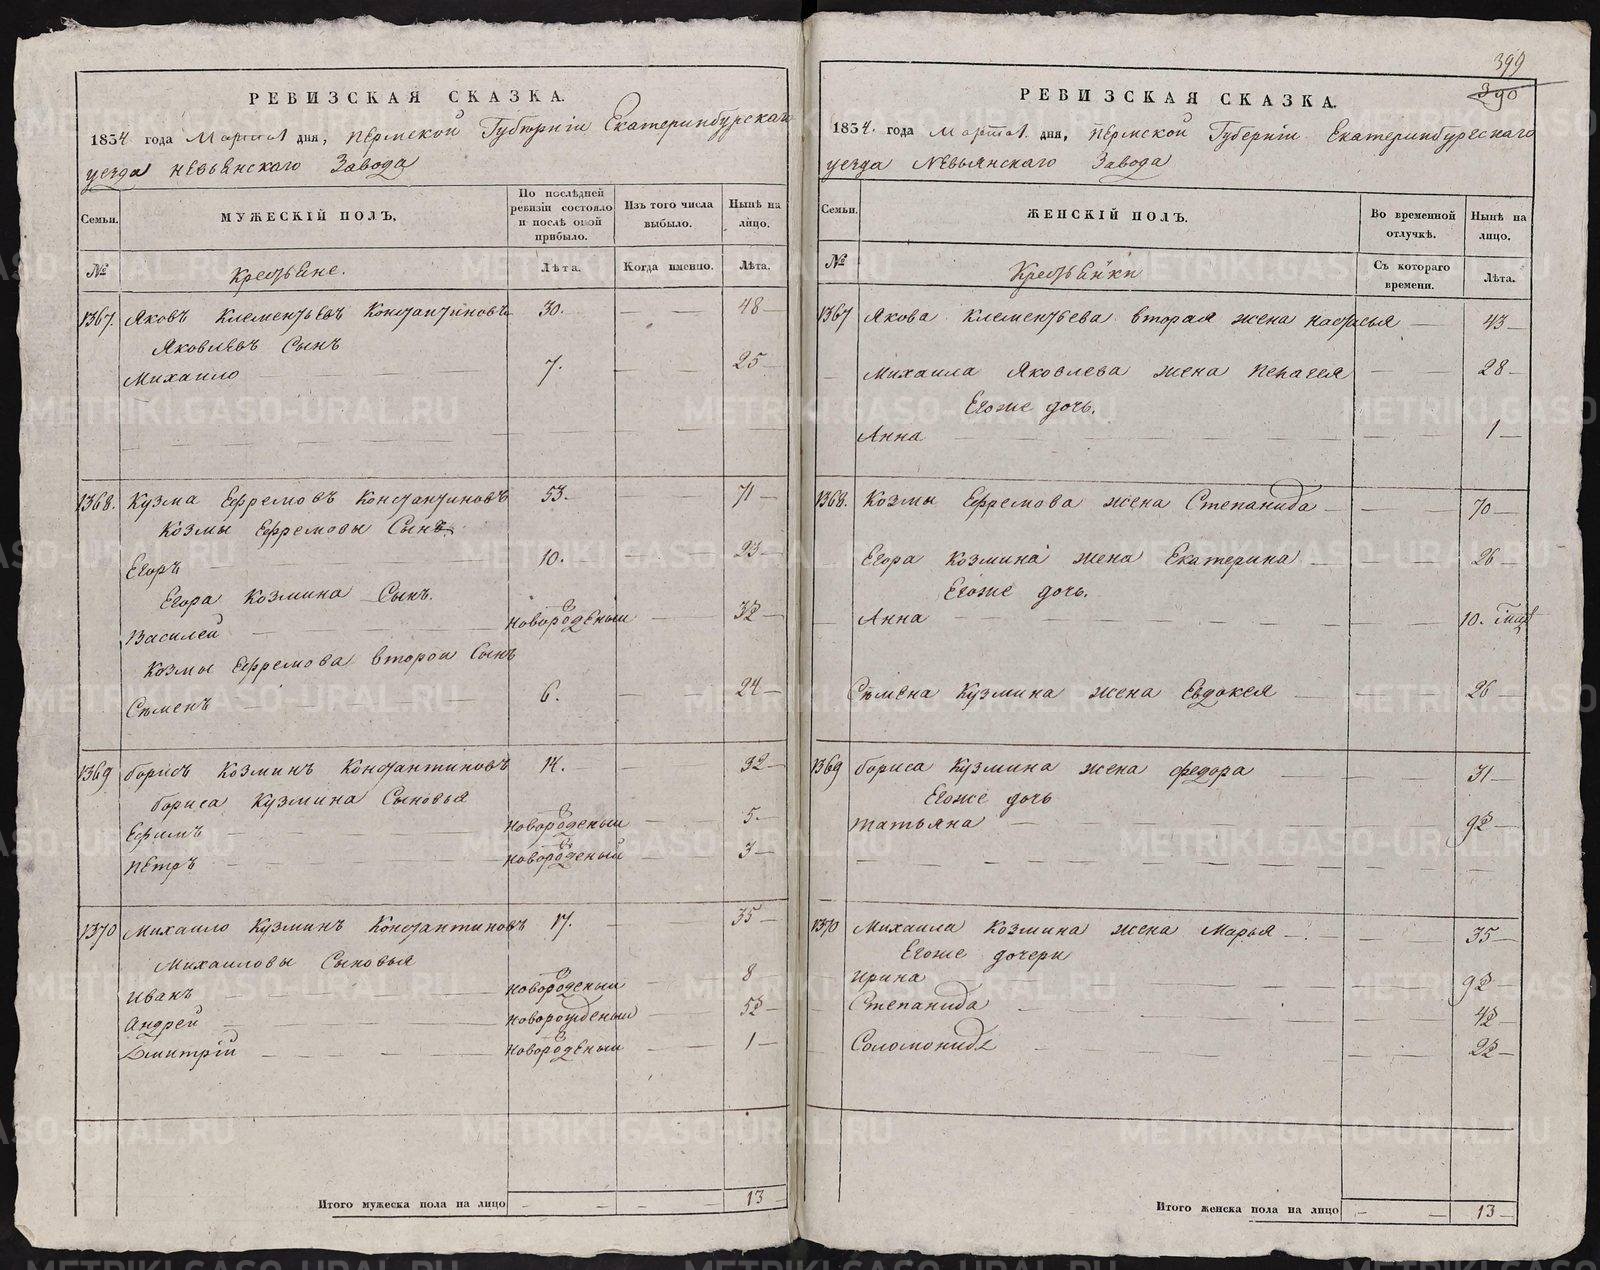 399
390
РЕВИЗСКАЯ СКАЗКА.
1854 года Марта 1 дня, Пермской Губерніи Екатеринбурскаго
уезда Невьянскаго Завода
Семьи.
МУЖЕСКІЙ ПОЛЪ,
По послѣдней ревизіи состояло и послѣ оной прибыло.
Изъ того числа выбыло.
Нынѣ на лицо.
№
Крестьяне.
Лѣта.
Когда именно.
Лѣта.
1367. Яковъ Клементьевъ Константиновъ 30. — — 48
Яковлевъ Сынъ
Михаило 7. — — 25
1368. Кузма Ефремовъ Константиновъ 53. — — 71
Козмы Ефремовы Сынъ
Егоръ 10. — — 23
Егора Козмина Сынъ.
Василей новорожденый — — 3½
Козмы Ефремова второй Сынъ
Сѣменъ 6. — — 24
1369 Борисъ Козминъ Константиновъ 14. — — 32
Бориса Кузмина Сыновья
Ефимъ новорожденый — — 5.
Петръ новорожденый — — 3
1370 Михаило Кузминъ Константиновъ 17. — — 35
Михаиловы Сыновья
Иванъ новорожденый — — 8
Андрей новорожденый — — 5½
Дмитрій новорожденый — — 1
Итого мужеска пола на лицо — — 13
РЕВИЗСКАЯ СКАЗКА.
1854. года Марта 1. дня, Пермской Губерніи Екатеринбурескаго
уезда Невьянскаго Завода
Семьи.
ЖЕНСКІЙ ПОЛЪ.
Во временной отлучкѣ.
Нынѣ на лицо.
№
Крестьянки
Съ котораго времени.
Лѣта.
1367 Якова Клементьева вторая жена Настасья — 43
Михаила Яковлева жена Пелагея — — 28
Егоже дочь.
Анна — — 1
1368. Козмы Ефремова жена Степанида — — 70
Егора Козмина жена Екатерина — — 26
Егоже дочь.
Анна — — 10.
Сѣмена Кузмина жена Евдокея — — 26
1369 Бориса Кузмина жена Федора — — 31
Егоже дочь
Татьяна — — 9½
1370 Михаила Козмина жена Марья — — 35
Егоже дочери
Ирина — — 9½
Степанида — — 4½
Соломонида — — 2½
Итого женска пола на лицо — — 13